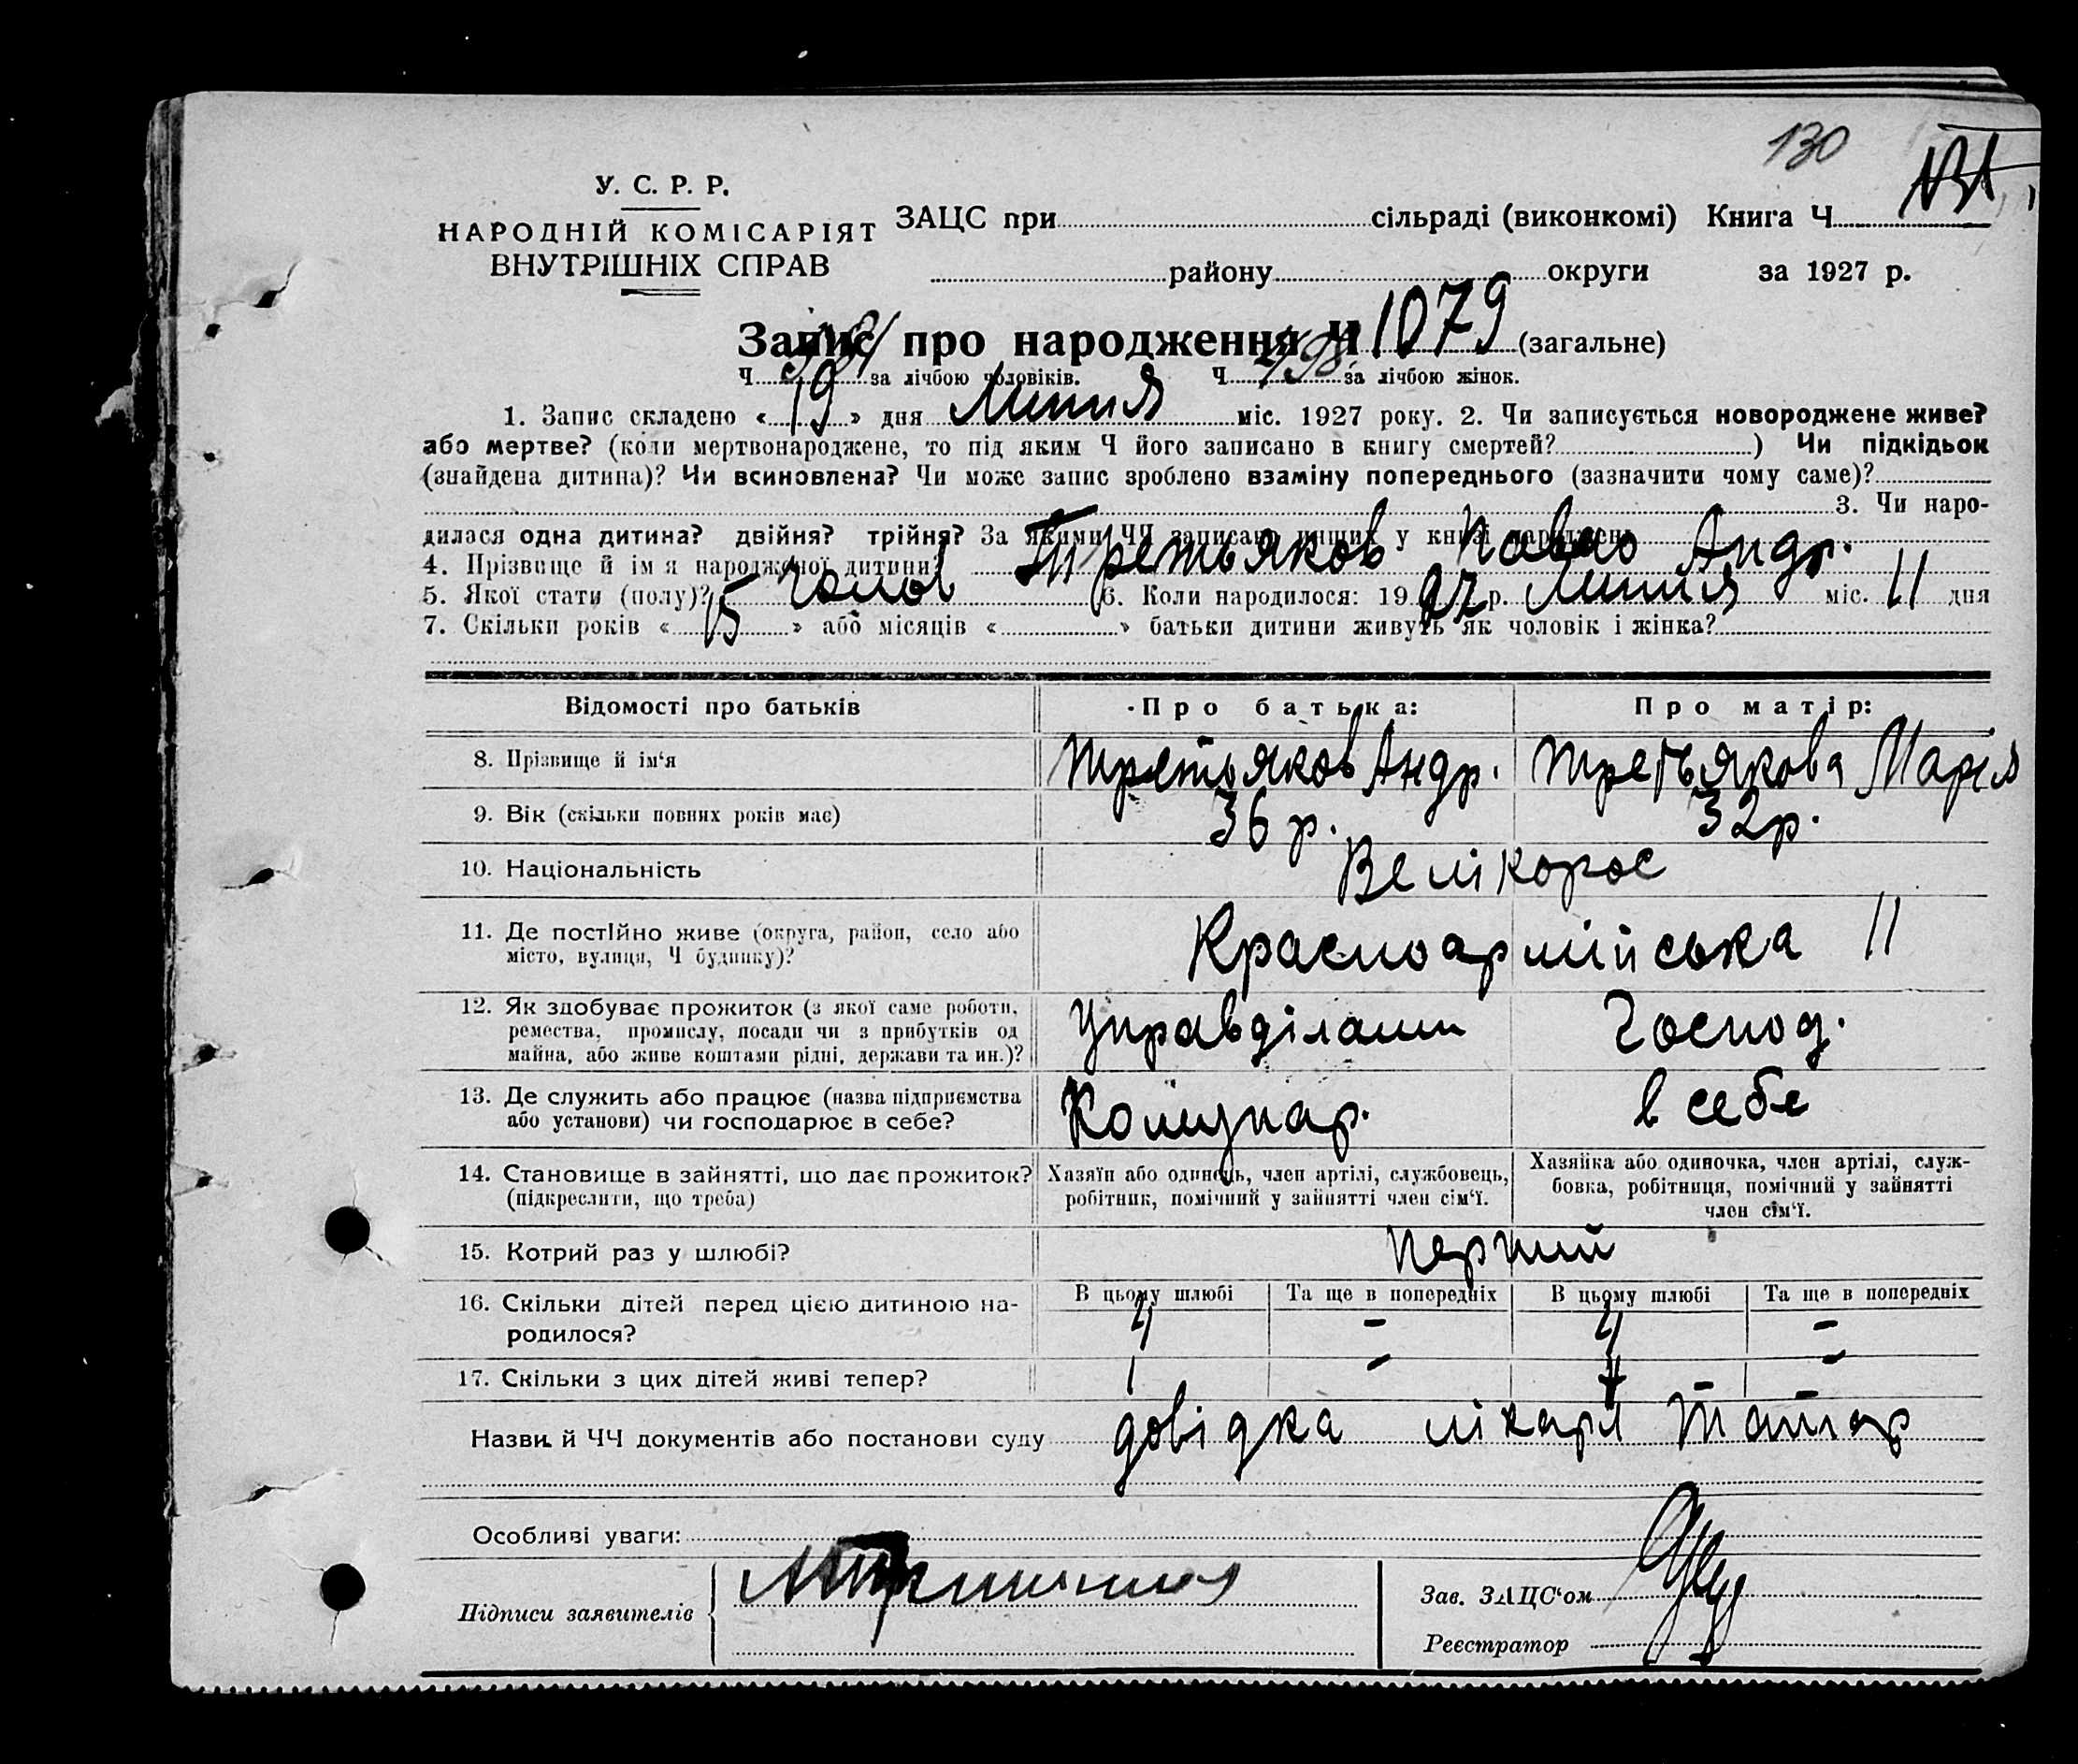 130
131
У. С. Р. Р.
НАРОДНІЙ КОМІСАРІЯТ
ВНУТРІШНІХ СПРАВ
ЗАЦС при сільраді (виконкомі) Книга Ч
району округи за 1927 р.
Запис про народження Ч 1079 (загальне)
Ч за лічбою чоловіків. Ч 498 за лічбою жінок.
1. Запис складено « 19 » дня Липня міс. 1927 року. 2. Чи записується новороджене живе?
або мертве? (коли мертвонароджене, то під яким Ч його записано в книгу смертей? ) Чи підкідьок
(знайдена дитина)? Чи всиновлена? Чи може запис зроблено взаміну попереднього (зазначити чому саме)?
3. Чи наро-
дилася одна дитина? двійня? трійня? За якими ЧЧ записано инших у книзі народжень
4. Прізвище й ім'я народженої дитини? Третьяков Павло Андр.
5. Якої стати (полу)? чолов 6. Коли народилося: 1927 р. Липня міс. 11 дня
7. Скільки років « 15 » або місяців « » батьки дитини живуть як чоловік і жінка?
Відомості про батьків Про батька: Про матір:
8. Прізвище й ім'я Третьяков Андр. Третьякова Марія
9. Вік (скільки повних років має) 36 р. 32 р.
10. Національність Велікорос
11. Де постійно живе (округа, район, село або
місто, вулиця, Ч будинку)? Красноармійська 11
12. Як здобуває прожиток (з якої саме роботи,
ремества, промислу, посади чи з прибутків од
майна, або живе коштами рідні, держави та ин.)? Управділами Господ.
13. Де служить або працює (назва підприємства
або установи) чи господарює в себе? Комунар. в себе
14. Становище в зайнятті, що дає прожиток?
(підкреслити, що треба)
Хазяїн або одинець, член артілі, службовець,
робітник, помічний у зайнятті член сім'ї.
Хазяйка або одиночка, член артілі, служ-
бовка, робітниця, помічний у зайнятті
член сім'ї.
15. Котрий раз у шлюбі? Перший
В цьому шлюбі Та ще в попередніх В цьому шлюбі Та ще в попередніх
16. Скільки дітей перед цією дитиною на-
родилося? 4 - 4 -
17. Скільки з цих дітей живі тепер? 1 - -
Назви й ЧЧ документів або постанови суду довідка лікаря Татар
Особливі уваги:
Підписи заявителів
Зав. ЗАЦС'ом
Реєстратор